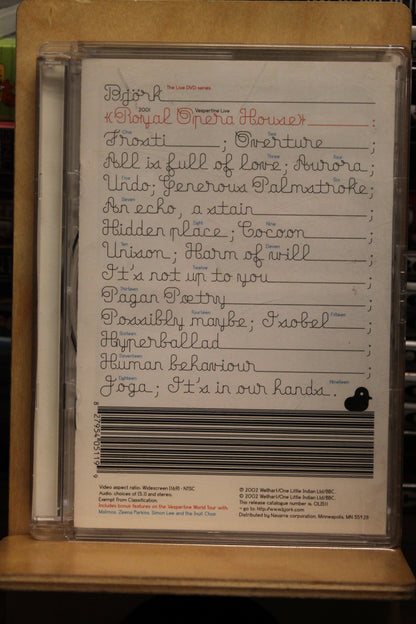 Björk The Live DVD series
2001 Vespertine Live
«Royal Opera House»;
One Two
Frosti; Overture;
Three Four
All is full of love; Aurora;
Five Six
Undo; Generous Palmstroke;
Seven
An echo, a stain;
Eight Nine
Hidden place; Cocoon;
Ten Eleven
Unison; Harm of will;
Twelve
It's not up to you;
Thirteen
Pagan Poetry;
Fourteen Fifteen
Possibly maybe; Isobel;
Sixteen
Hyperballad;
Seventeen
Human behaviour;
Eighteen Nineteen
Joga; It's in our hands.
8 27954 05119 9
Video aspect ratio: Widescreen (16:9) - NTSC
Audio: choices of (5.1) and stereo.
Exempt from Classification.
Includes bonus features on the Vespertine World Tour with
Matmos, Zeena Parkins, Simon Lee and the Inuit Choir
℗ 2002 Wellhart/One Little Indian Ltd/BBC.
© 2002 Wellhart/One Little Indian Ltd/BBC.
This release catalogue number is. OLI511
- go to: http://www.bjork.com
Distributed by Navarre corporation, Minneapolis, MN 55428